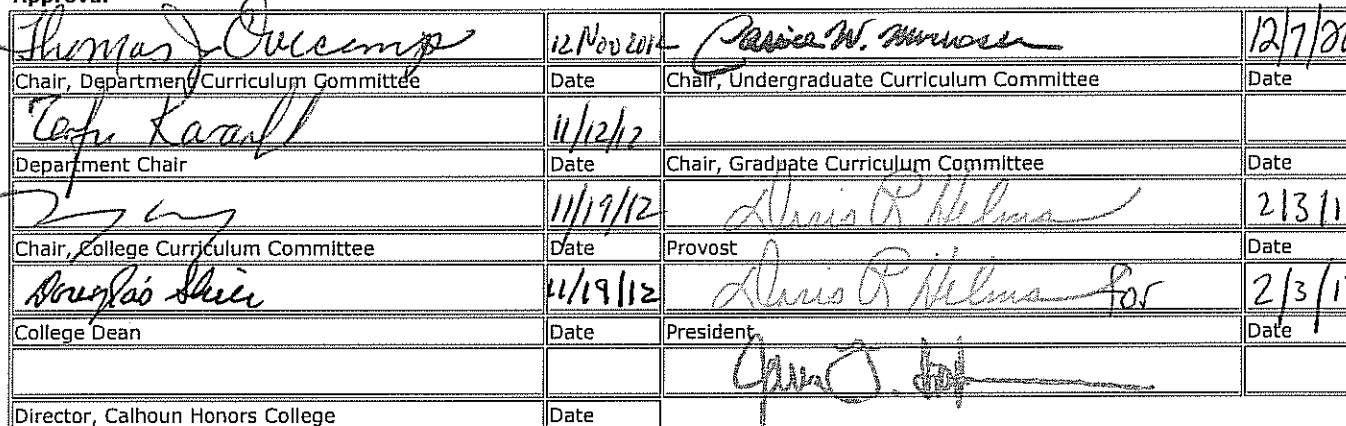 Approval
Thomas J Overcamp 12 Nov 2012 W. 12/7/20
Chair, Department Curriculum Committee Date Chair, Undergraduate Curriculum Committee Date
11/12/12
Department Chair Date Chair, Graduate Curriculum Committee Date
11/19/12 Doris R Helms 2/3/1
Chair, College Curriculum Committee Date Provost Date
Douglas 11/19/12 Doris R Helms for 2/3/1
College Dean Date President Date
Director, Calhoun Honors College Date